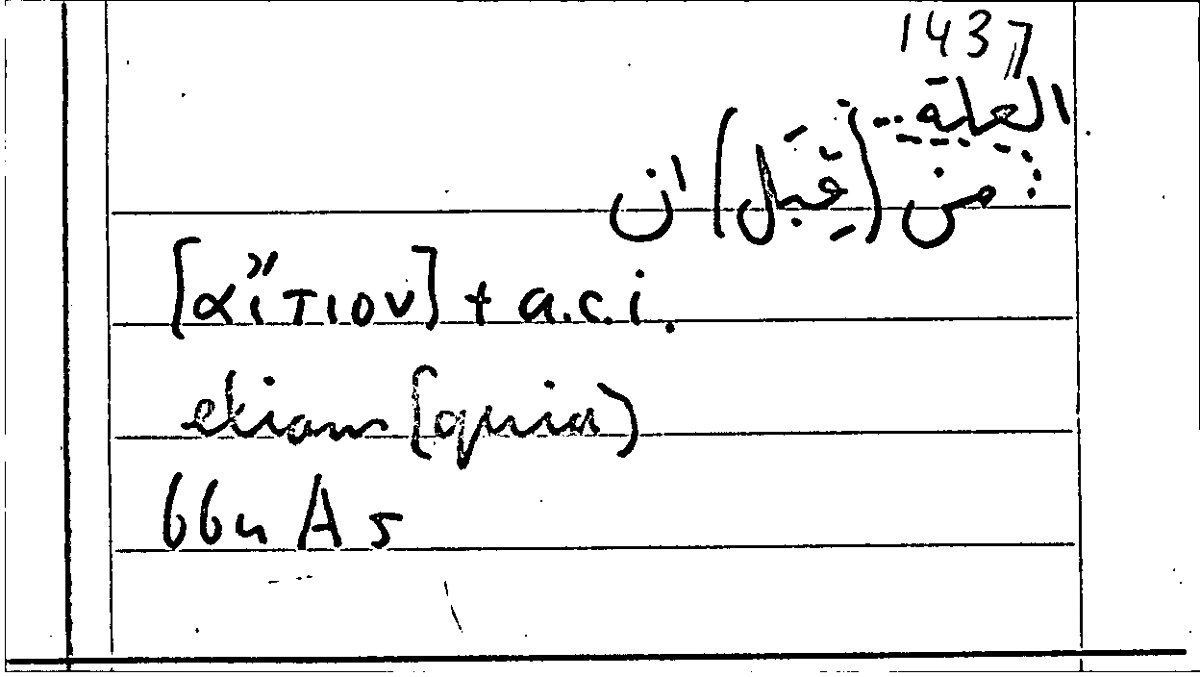 1437
العلة...
: من (قِبَل) ان
[αἴτιον] + a.c.i.
etiam (quia)
66u A 5